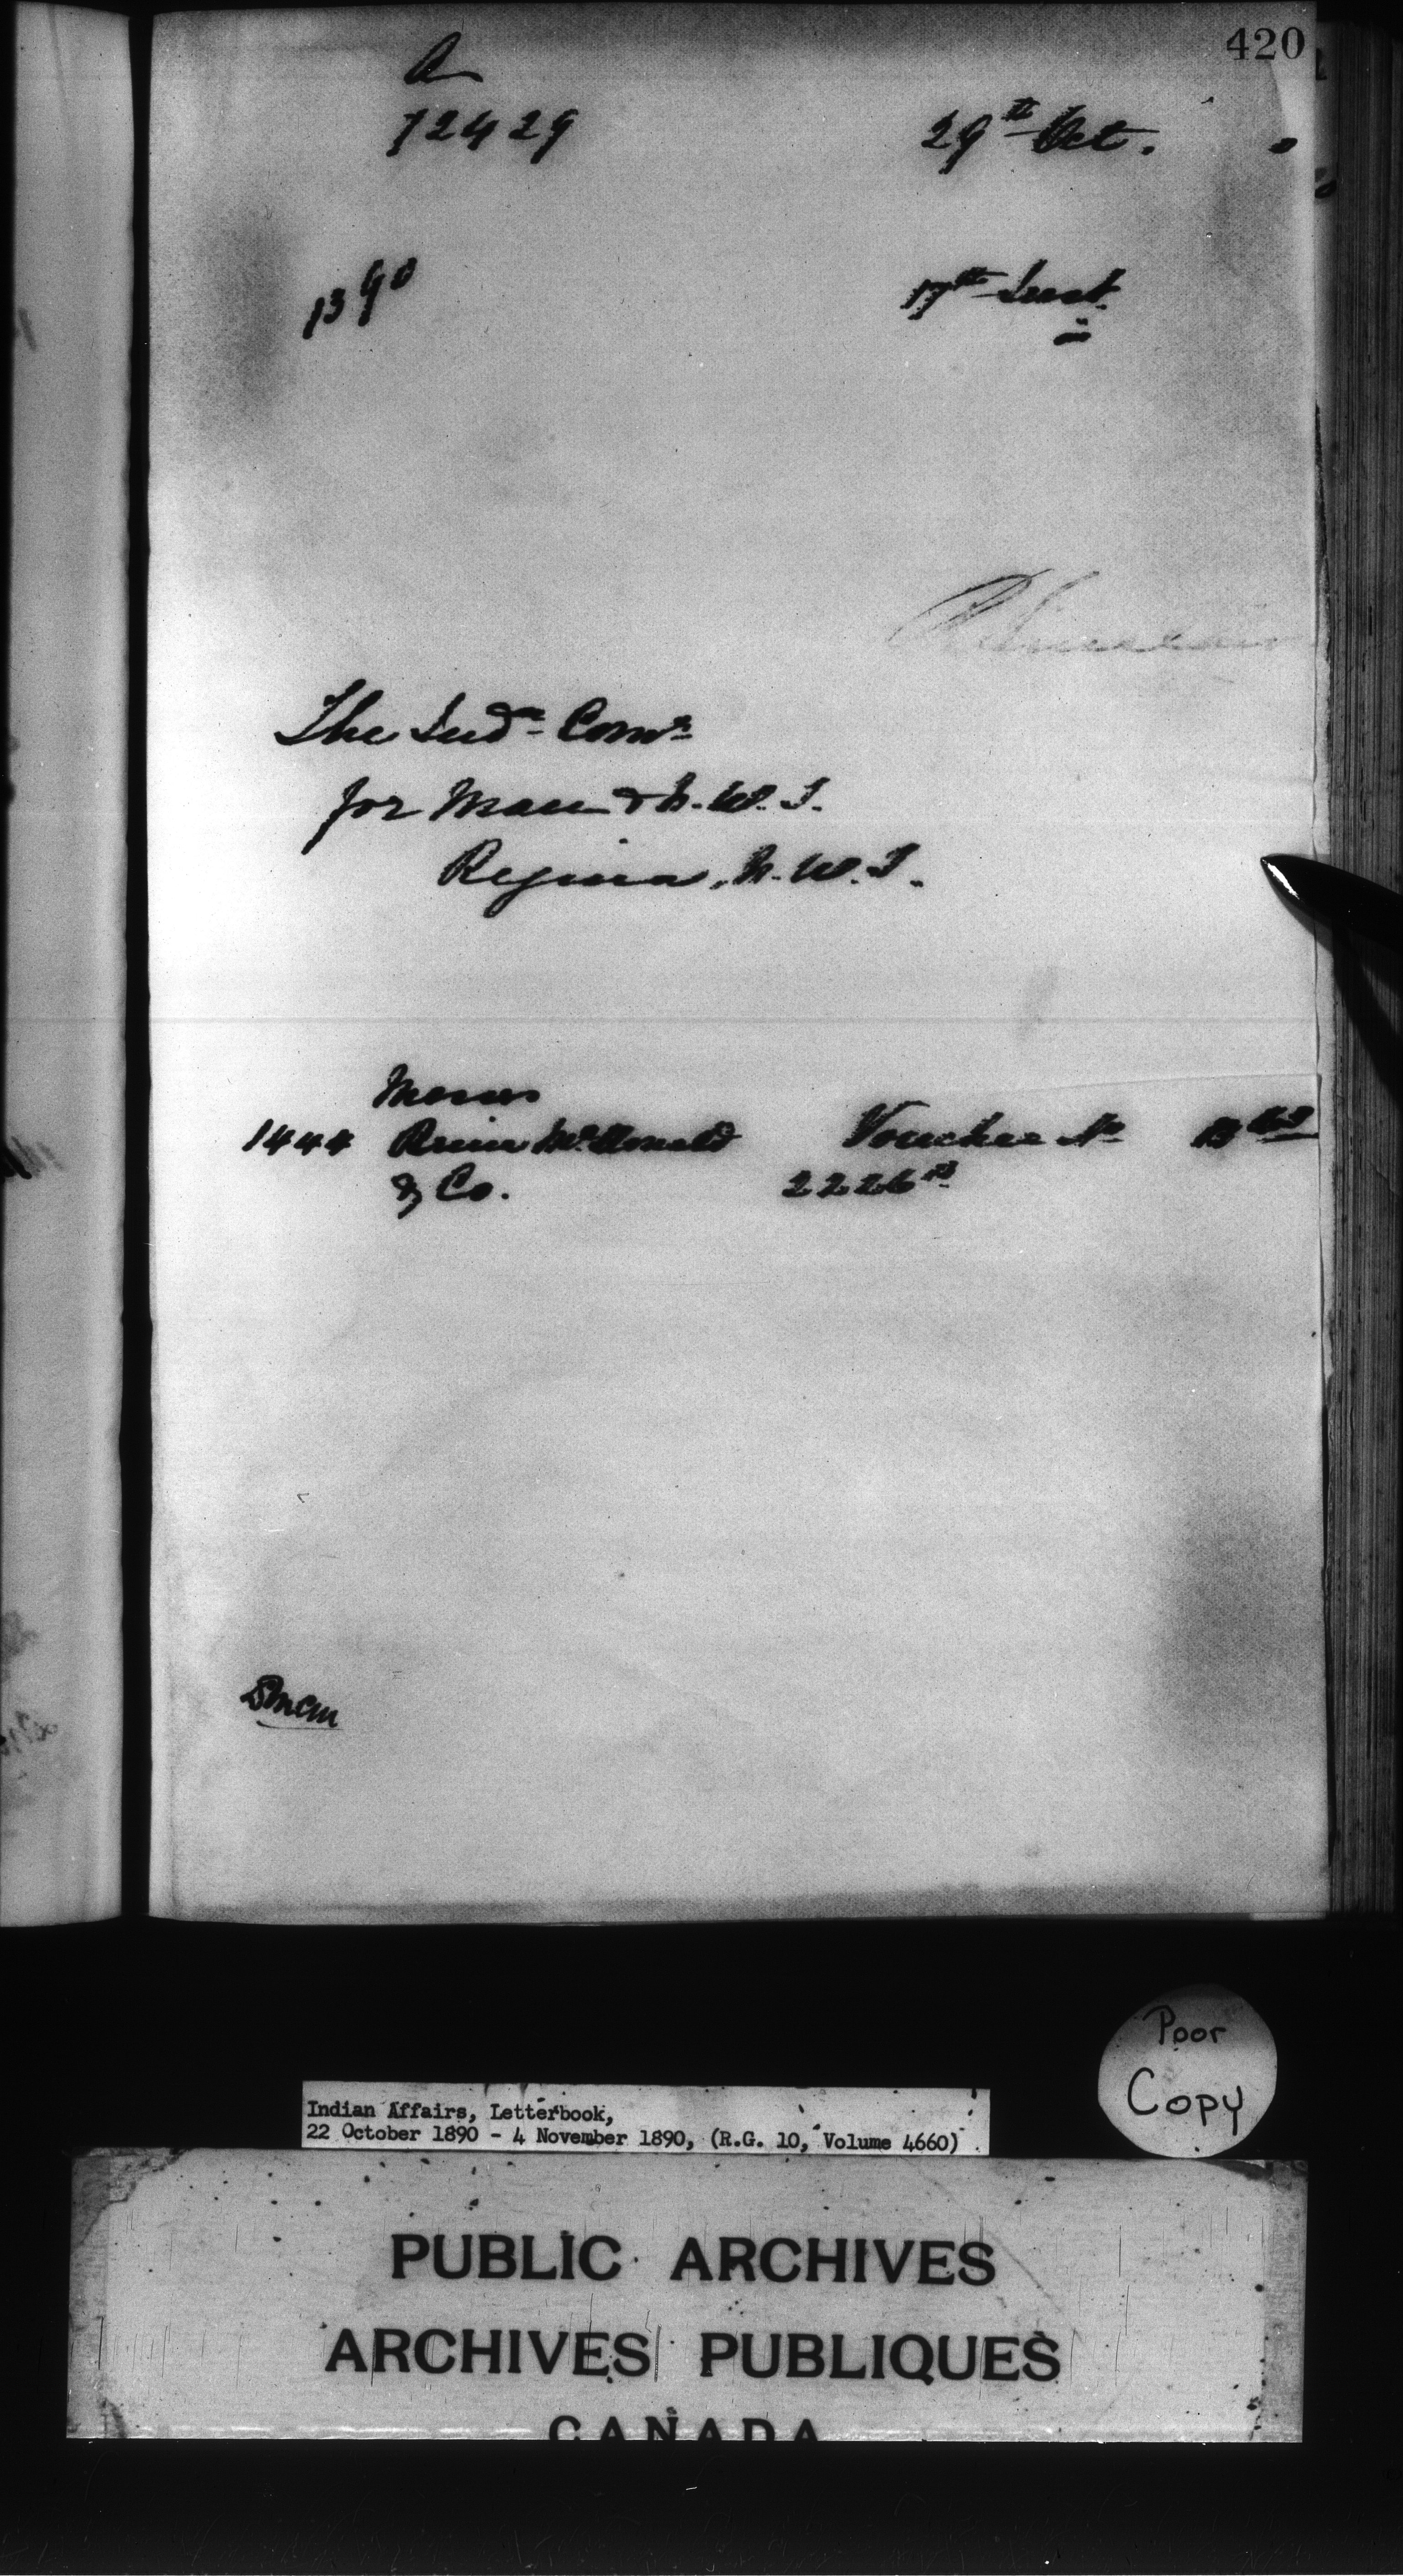 420
A
72429 29th Oct.
1390 17th Inst.
The Indn Comr
for Man & N.W.T.
Regina, N.W.T.
Messrs
1444 McDonald Voucher No 13
& Co. 2226
Indian Affairs, Letterbook,
22 October 1890 - 4 November 1890, (R.G. 10, Volume 4660)
Poor
Copy
PUBLIC ARCHIVES
ARCHIVES PUBLIQUES
CANADA